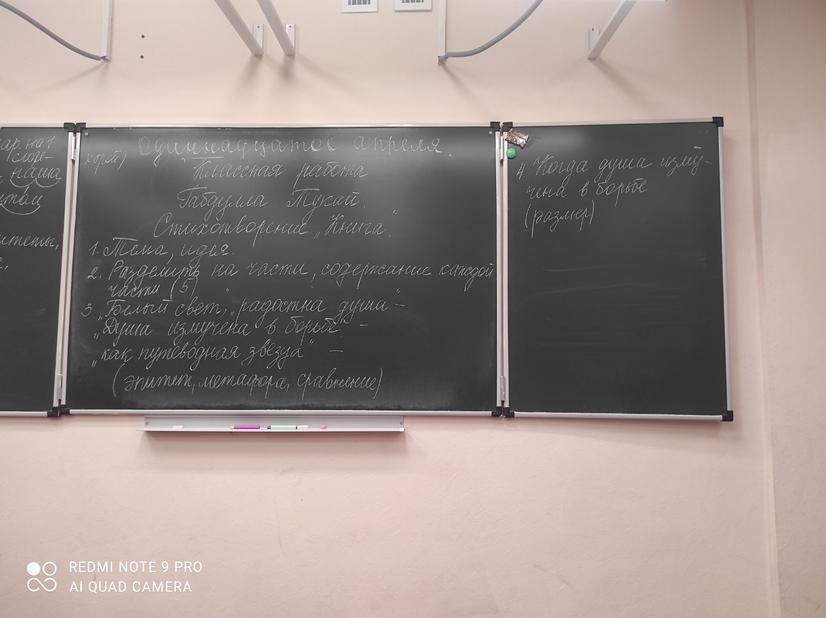 ар. на 1
хорей)
наша
Одиннадцатое апреля.
Классная работа
Габдулла Тукай.
Стихотворение „Книга".
1. Тема, идея.
2. Разделить на части, содержание каждой
части (5)
3. „Белый свет", „радостна душа" –
„Душа измучена в борьбе" –
„как путеводная звезда" –
(эпитет, метафора, сравнение)
4. Когда душа изму-
чена в борьбе
(размер)
REDMI NOTE 9 PRO
AI QUAD CAMERA